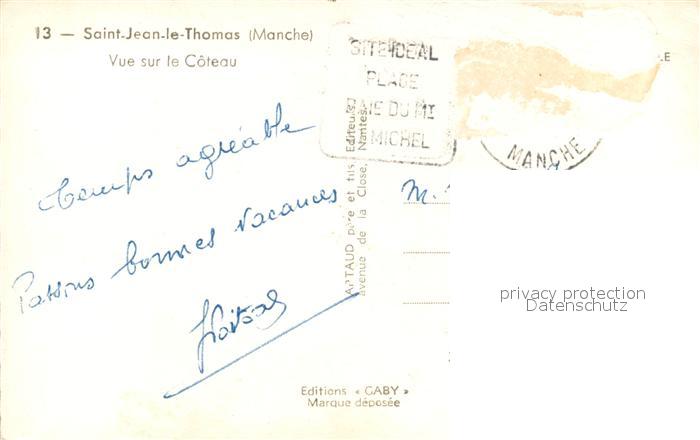 13 — Saint-Jean-le-Thomas (Manche)
Vue sur le Côteau
SITE IDEAL
PLAGE
BAIE DU MT
MICHEL
LE
MANCHE
Temps agréable
Passons bonnes vacances
M.
ARTAUD père et fils, Editeurs
avenue de la Close, Nantes
privacy protection
Datenschutz
Editions « GABY »
Marque déposée